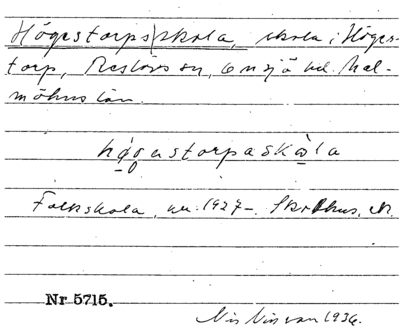 Högestorps|skola, skola i Höges-
torp, Reslövs sn, Onsjö hd. Mal-
möhus län.
högastorpaskåla
Folkskola, nu. 1927-.
Nr 5715.
Nils Nilsson 1936.